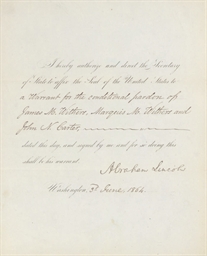 I hereby authorize and direct the Secretary
of State to affix the Seal of the United States to
a warrant for the conditional pardon of
James M. Withers, Marquis M. Withers and
John N. Carter,
dated this day and signed by me and for so doing this
shall be his warrant.
Abraham Lincoln
Washington, 3d June 1864